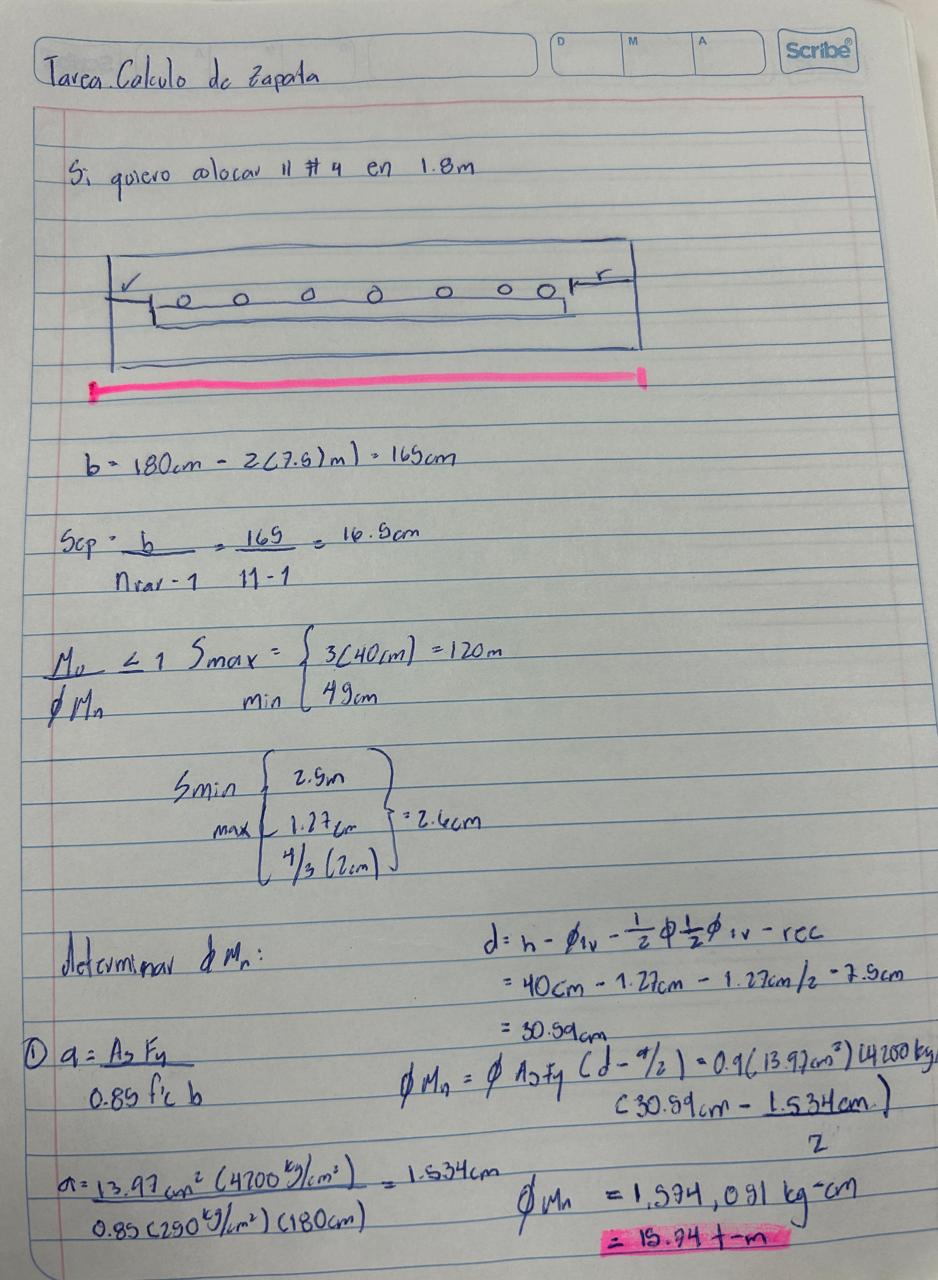 D M A Scribe®
Tarea. Calculo de Zapata
Si quiero colocar 11 # 4 en 1.8m
r r
b = 180cm - 2(7.5)m) = 165cm
Scp = b / nvar - 1 = 165 / 11 - 1 = 16.5cm
Mu / ϕMn ≤ 1 Smax = min { 3(40cm) = 120m
45cm
Smin max { 2.5m
1.27cm
4/3 (2cm) } = 2.6cm
determinar ϕMn:
d = h - ϕiv - 1/2 ϕ 1/2 ϕiv - rec
= 40cm - 1.27cm - 1.27cm/2 - 7.5cm
= 30.59cm
① a = As Fy / 0.85 f'c b
ϕMn = ϕ As Fy (d - a/2) = 0.9(13.97cm²)(4200 kg/
(30.59cm - 1.534cm / 2)
a = 13.97 cm² (4200 kg/cm²) / 0.85 (250 kg/cm²) (180cm) = 1.534cm
ϕMn = 1,574,091 kg-cm
= 15.74 t-m